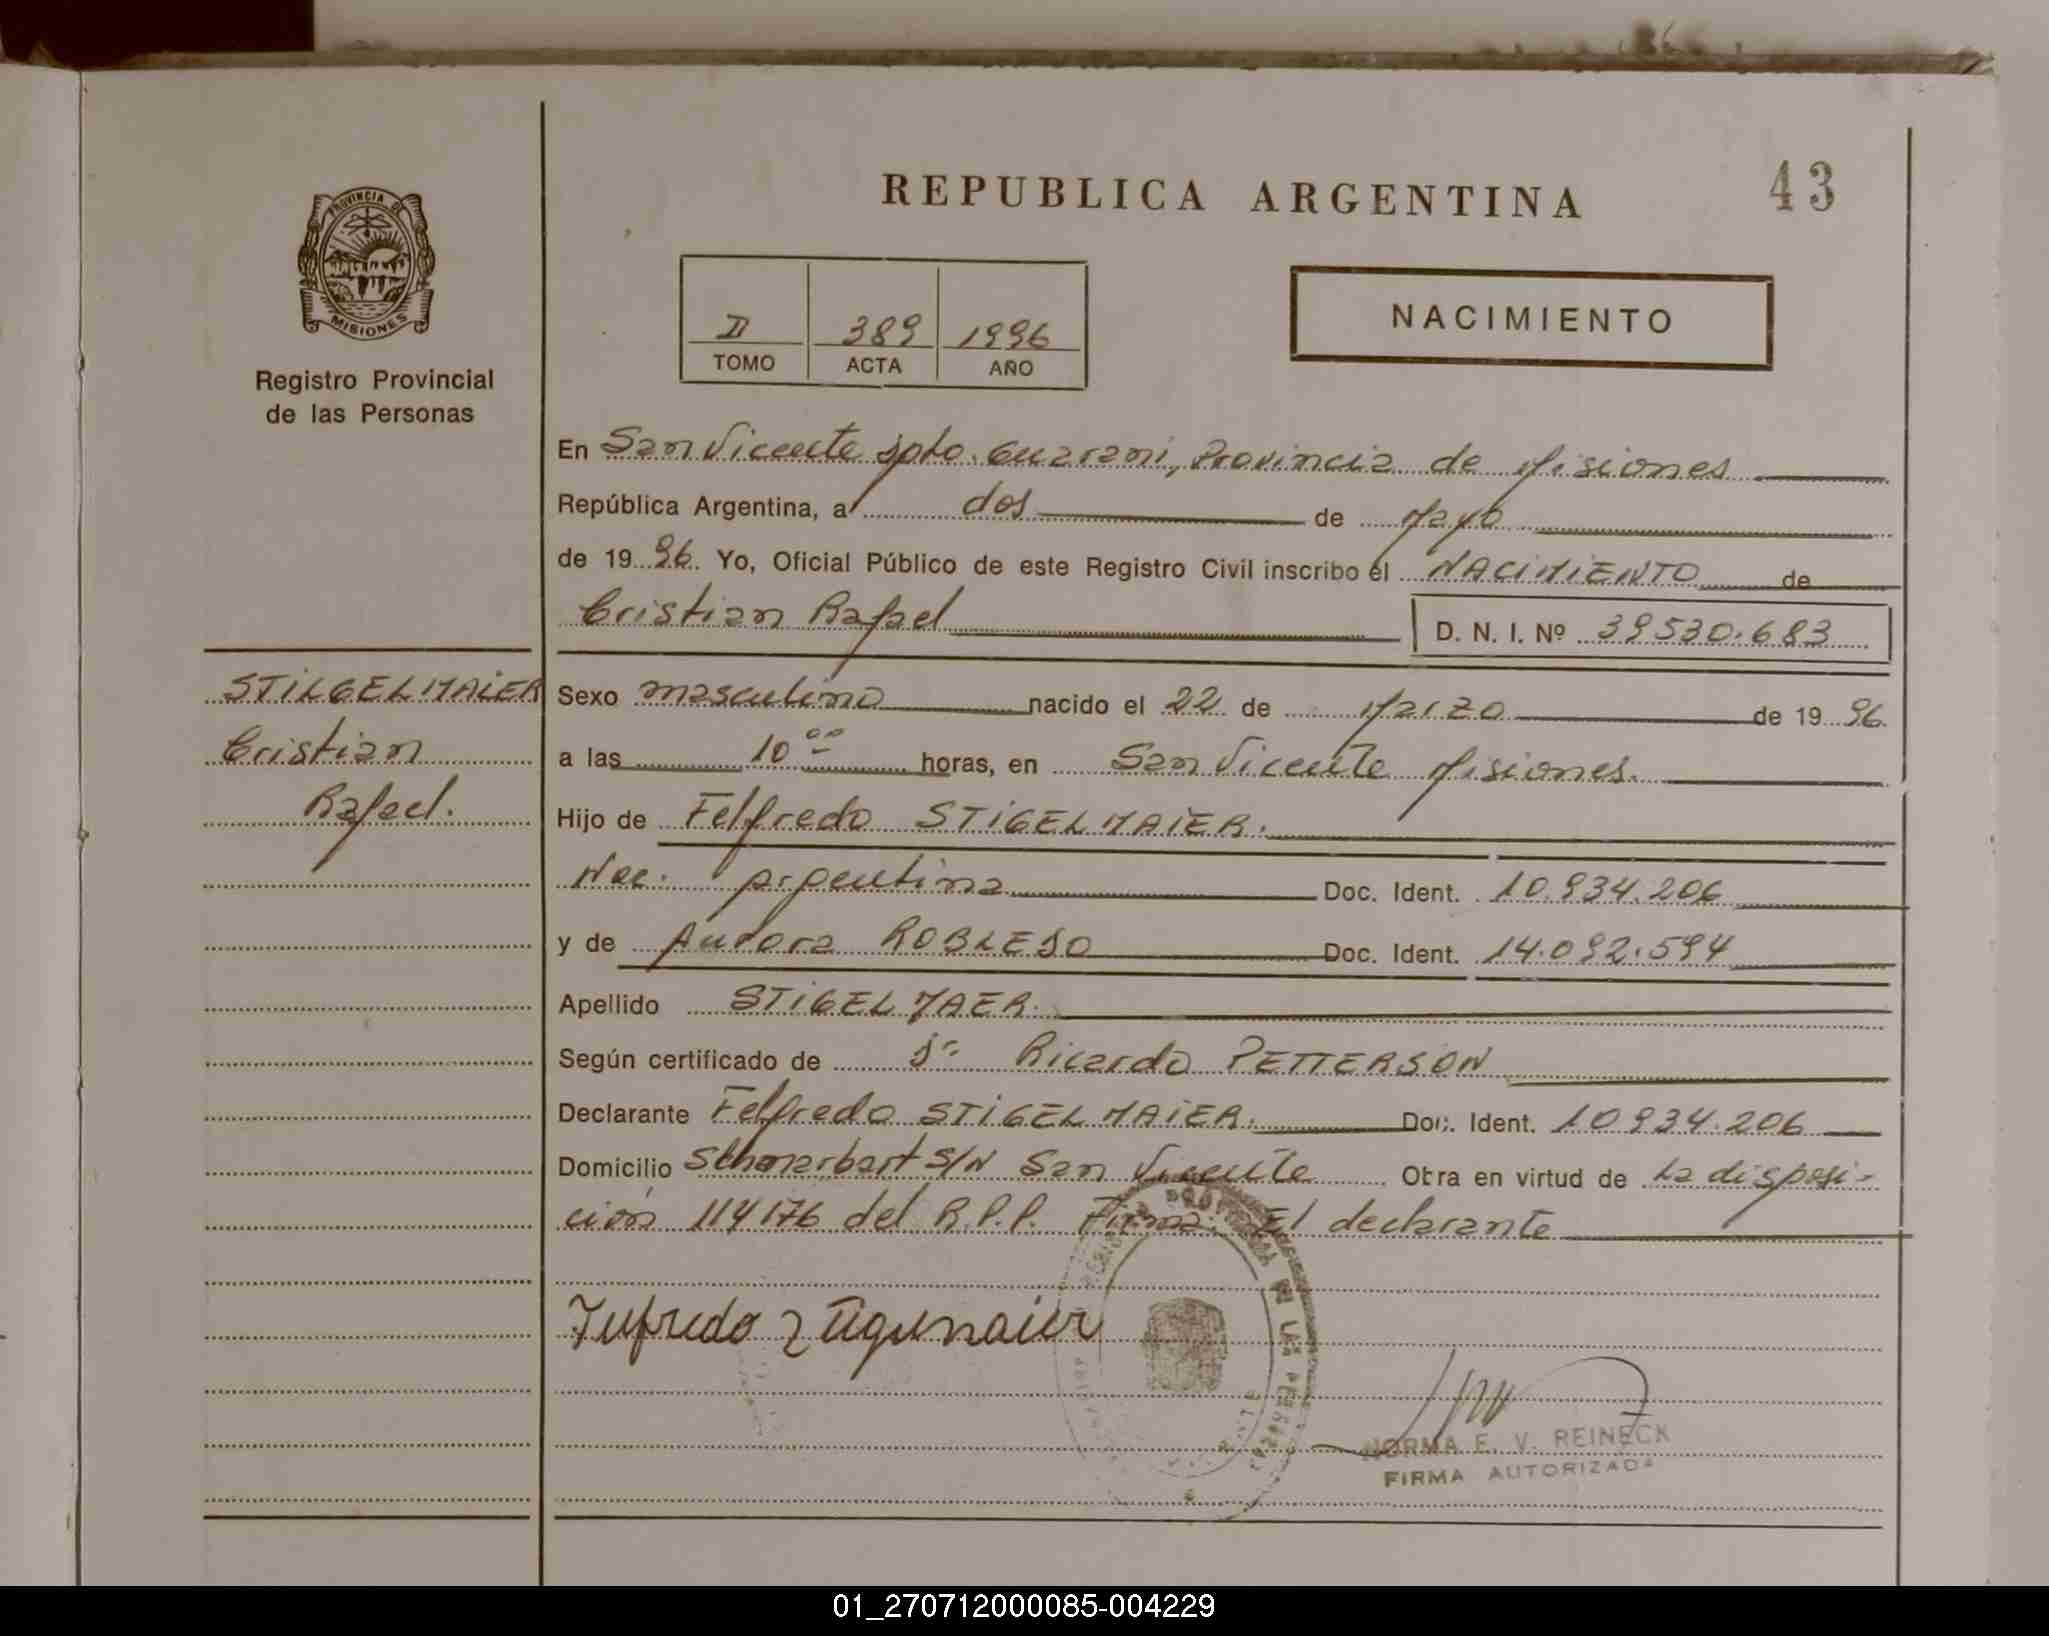 43
REPUBLICA ARGENTINA
PROVINCIA DE
MISIONES
Registro Provincial
de las Personas
II 389 1996
TOMO ACTA AÑO
NACIMIENTO
En San Vicente Dpto. Guarani, Provincia de Misiones
República Argentina, a dos de Mayo
de 1996. Yo, Oficial Público de este Registro Civil inscribo el NACIMIENTO de
Cristian Rafael D. N. I. Nº 39530.683
STILGELMAIER
Cristian
Rafael.
Sexo masculino nacido el 22 de Marzo de 1996
a las 10 00 horas, en San Vicente Misiones.
Hijo de Felfredo STIGELMAIER.
Nac. Argentina Doc. Ident. 10.934.206
y de Aurora ROBLEDO Doc. Ident. 14.092.594
Apellido STIGELMAER.
Según certificado de Dr. Ricardo PETTERSON
Declarante Felfredo STIGELMAIER. Doc. Ident. 10934.206
Domicilio S/N San Vicente Obra en virtud de La disposi-
ción 114176 del R.P.P. Firma: El declarante
NORMA E. V. REINECK
FIRMA AUTORIZADA
01_270712000085-004229